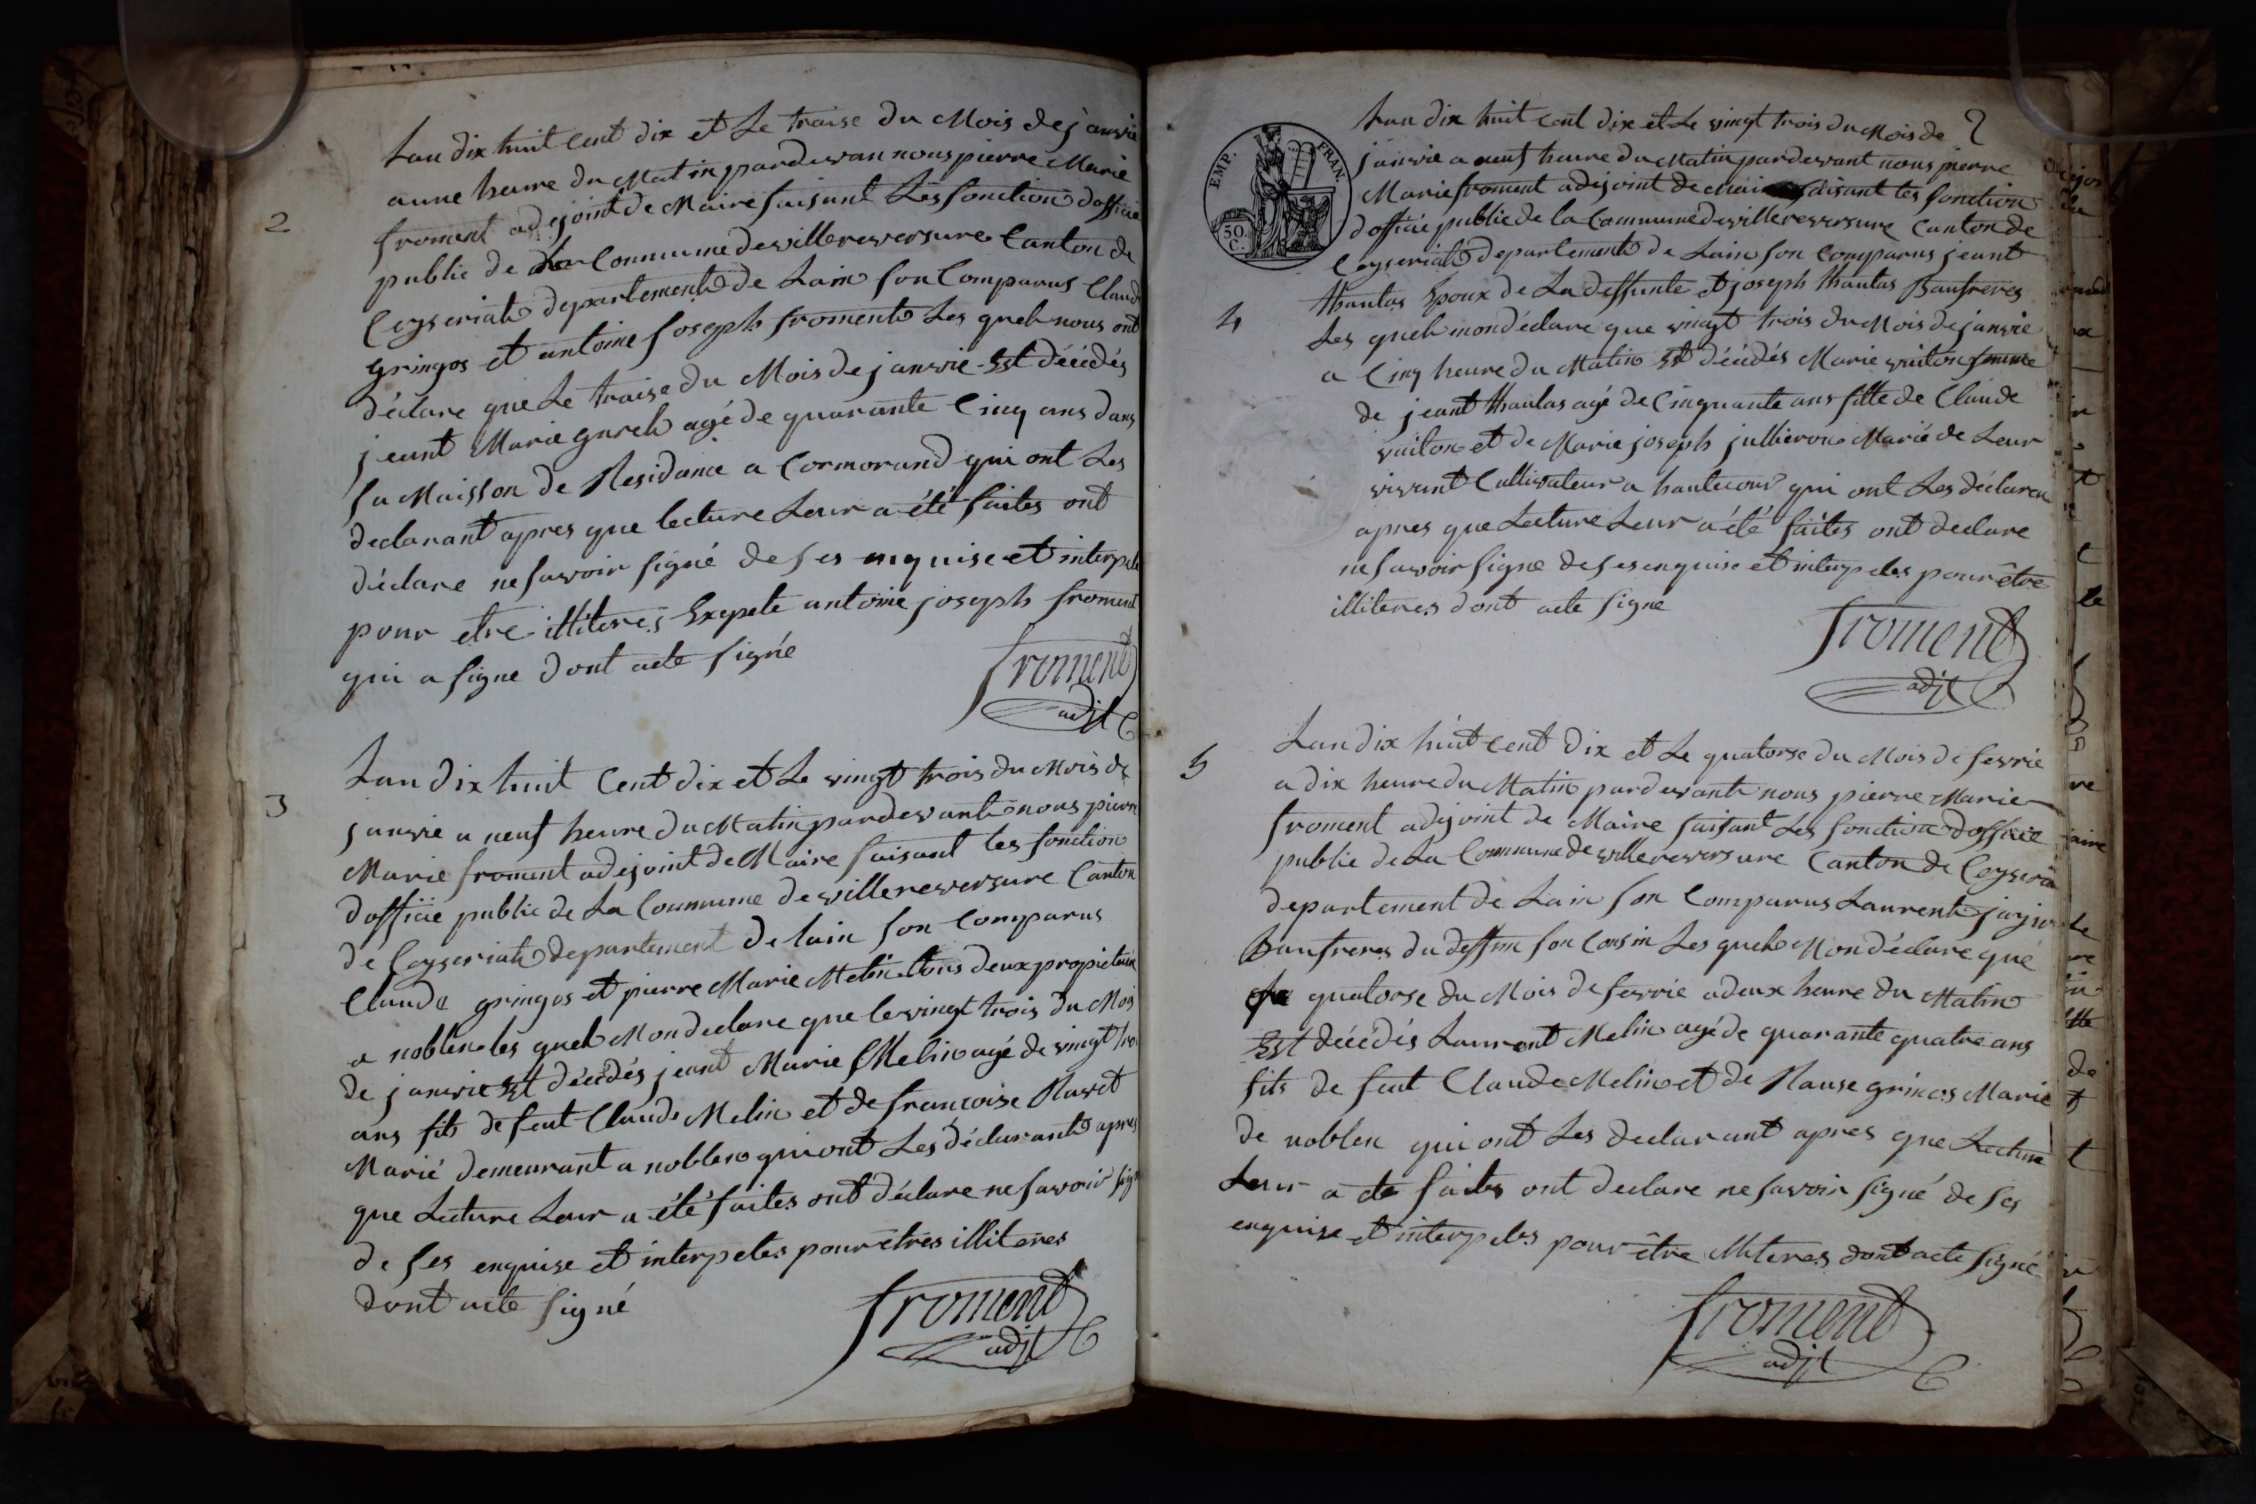 2
Lan dix huit cent dix et Le traise du Mois de janvie
a une heure du Matin pardevan nous pierre Marie
froment adejoint de Maire faisant Les fonction dofficie
public de La Commune de villereversure Canton de
Ceyseriat departement de Lain son Comparus Claud
gringos et antoine Joseph froment Les quels nous ont
déclare que Le traise du Mois de janvie Est décédés
jeant Marie agé de quarante Cinq ans dans
sa Maisson de Residance a Cormorand qui ont Les
declarant apres que lecture Leur a été faites ont
déclare ne savoir signé de ses enquise et interpele
pour etre illiteres Exepete antoine joseph froment
qui a signe dont acte signé
froment
adjt
3
Lan dix huit Cent dix et Le vingt trois du Mois de
janvie a neuf heure du Matin pardevant nous pierre
Marie froment adejoint de Maire faisant les fonction
dofficie public de La Commune de villereversure Canton
de Ceyseriat departement de lain son Comparus
Claude gringos et pierre Marie Melin tous deux propietaire
a noblen les quels Mon declare que le vingt trois du Mois
de janvie Est décédés jeant Marie Melin agé de vingt trois
ans fils de feut Claude Melin et de francoise Ravet
Marié demeurant a noblen qui ont Les déclarant apres
que Lecture Leur a été faites ont déclare ne savoir signe
de ses enquise et interpeles pour etres illiteres
dont acte signé
froment
adjt
EMP. FRAN.
50 C.
4
Lan dix huit cent dix et Le vingt trois du Mois de
janvie a neuf heure du Matin pardevant nous pierre
Marie froment adejoint de Maire faisant les fonction
dofficie public de la Commune de villereversure Canton de
Ceyseriat departement de Lain son Comparus jeant
thantas Epoux de La deffunte et joseph thantas Baufreres
Les quels mon déclare que vingt trois du Mois de janvie
a Cinq heure du Matin Est décédés Marie vuiton femme
de jeant thantas agé de Cinquante ans fille de Claude
vuiton et de Marie joseph jullieron Marié de Leur
vivant Cultivateur a hautecour qui ont Les déclaran
apres que Lecture Leur a été faites ont declare
ne savoir signe de ses enquise et interpeles pour être
illiteres dont acte signe
froment
adjt
5
Lan dix huit cent dix et Le quatorse du Mois de fevrie
a dix heure du Matin pardevant nous pierre Marie
froment adejoint de Maire faisant Les fonction dofficie
public de La Commune de villereversure Canton de Ceyseria
departement de Lain son Comparus Laurent
Baufreres du deffun son Cousin Les quels Mon déclare que
quatorse du Mois de fevrie a deux heure du Matin
Est décédés Laurent Melin agé de quarante quatre ans
fils de feut Claude Melin et de Rause gringos Marie
de noblen qui ont Les declarant apres que Lecture
Leur a été faites ont declare ne savoir signé de ses
enquise et interpeles pour être illiteres dont acte signé
froment
adjt